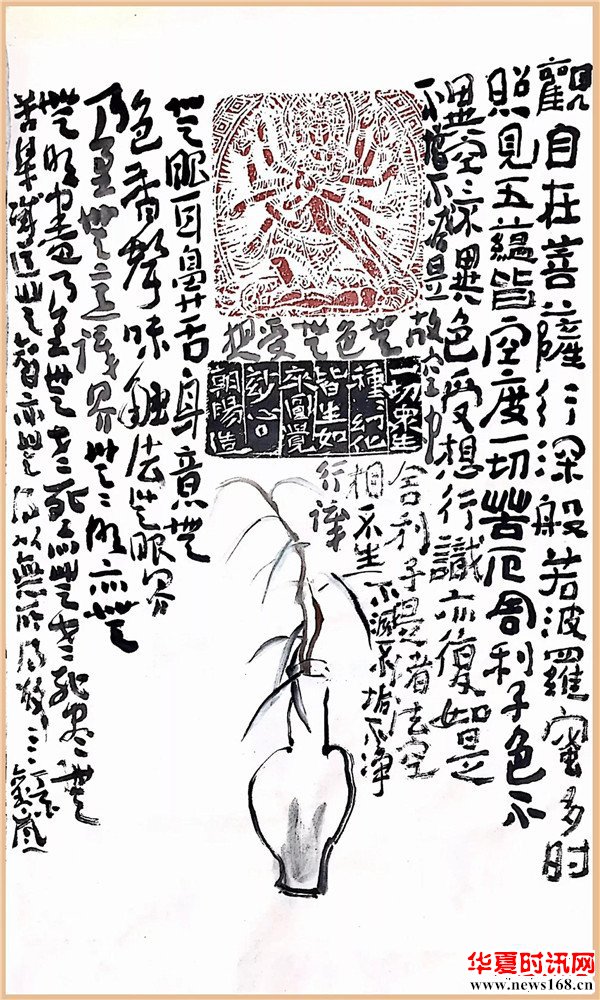 觀自在菩薩行深般若波羅蜜多时
照見五蘊皆空度一切苦厄舍利子色不
異空〻不異色受想行識亦復如是
舍利子是诸法空
相不生不滅不垢不净
不增不减是
故空中
無色無受想
行識
一切衆生
種種幻化
皆生如
來圓覺
妙心
朝陽造
無眼耳鼻舌身意無
色香聲味触法無眼界
乃至無意識界無〻明亦無
無明盡乃至無老死亦無老死盡無
苦集滅道無智亦無得以無所得故
华夏时讯网
www.news168.cn